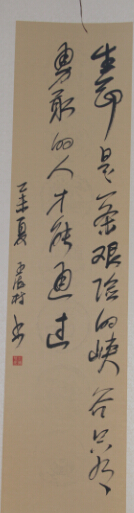 生命是一条艰险的峡谷只有
勇敢的人才能通过
乙未夏
书